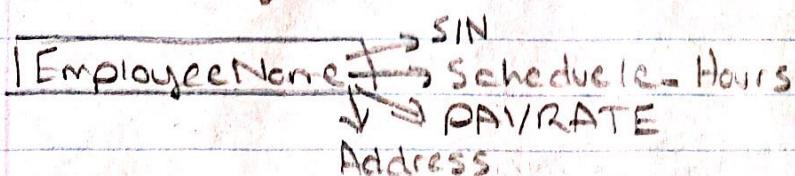 SIN
EmployeeName
Scheduele_Hours
PAYRATE
Address